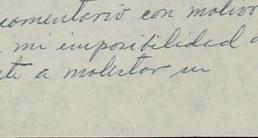 comentario con motivo
mi imposibilidad
a molestar su